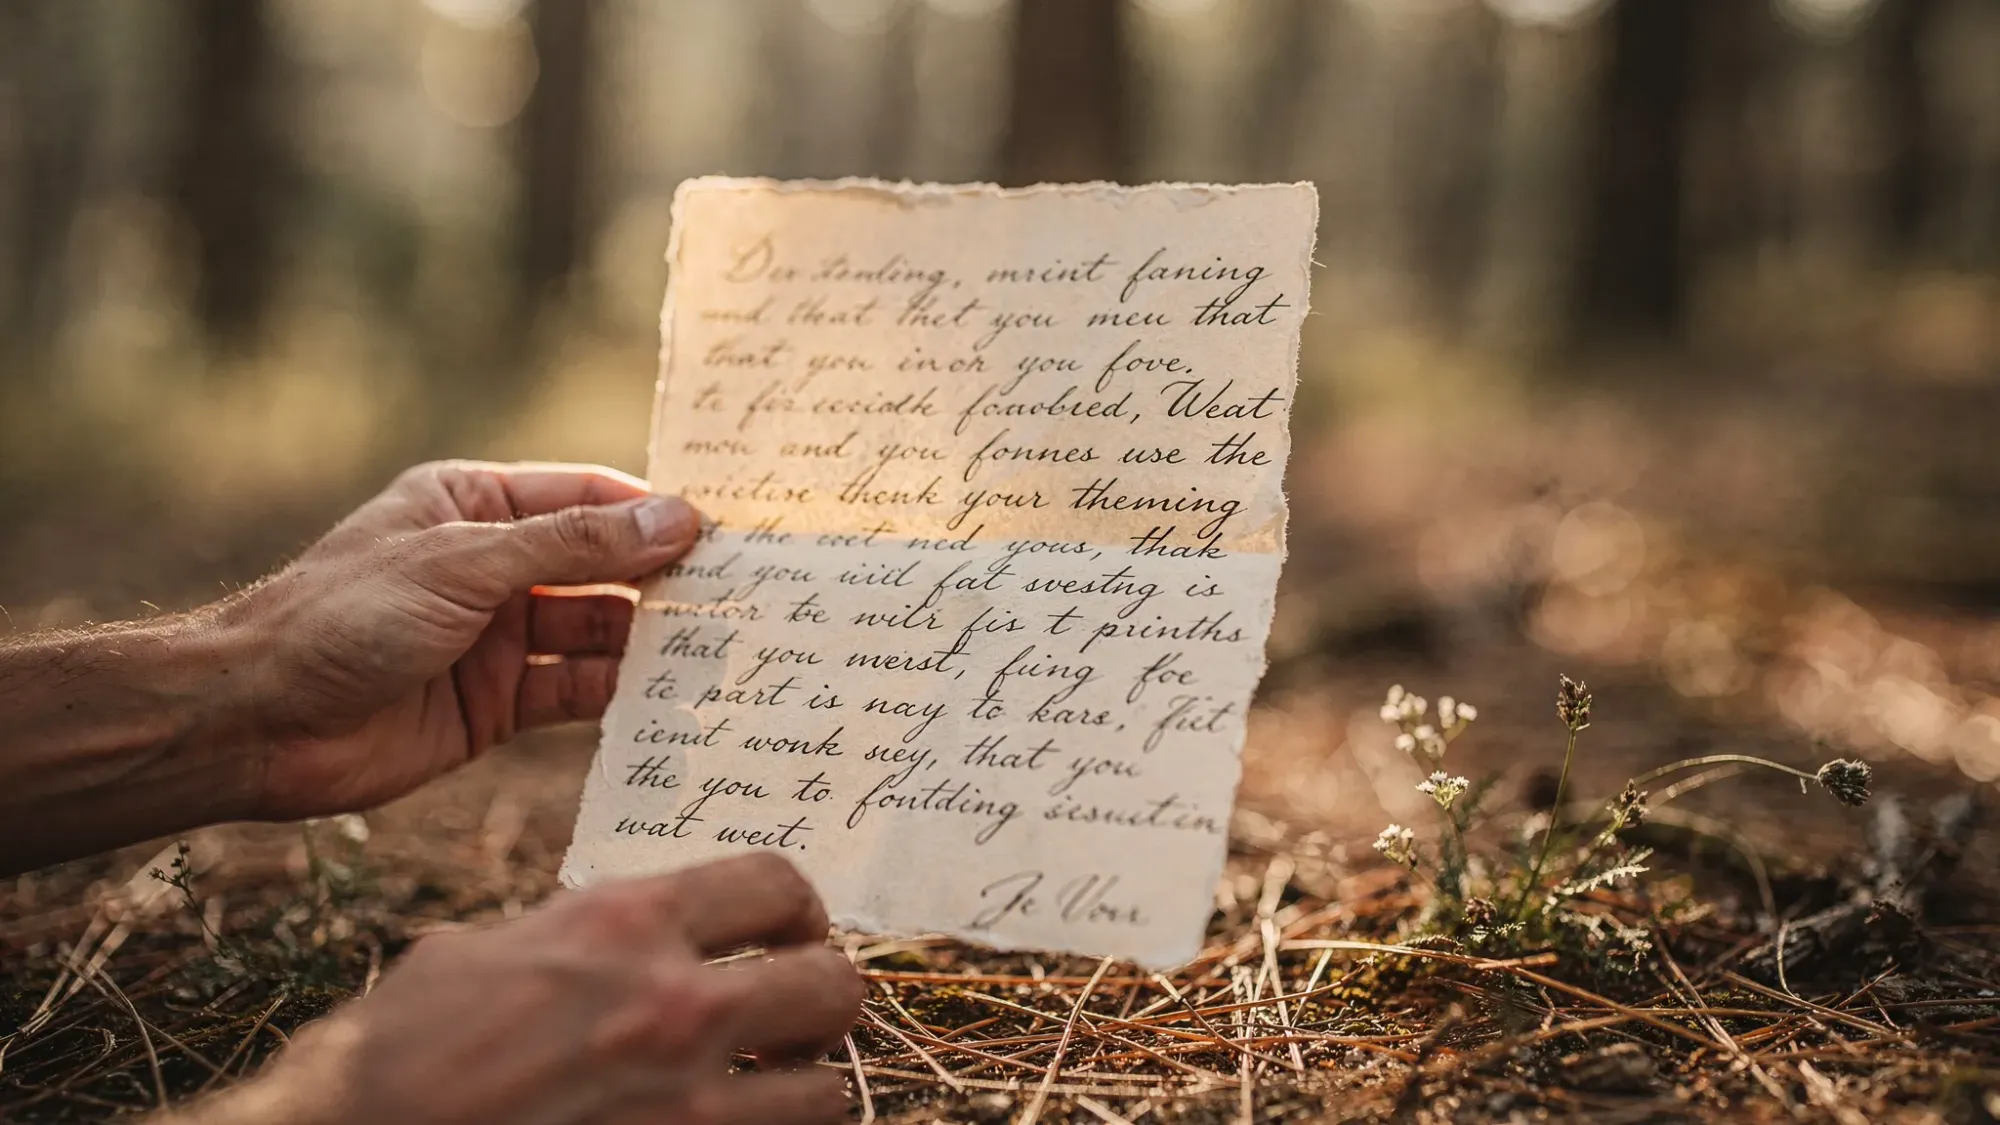 Der tenling, mrint faning
and that thet you meu that
that you inor you fove.
te fir ceciolk fonobred, Weat
mou and you fonnes use the
thenk your theming
the wet ned yous, thak
and you wiil fat svestng is
be wilr fis t prinths
that you merst, fuing foe
te part is nay to kars, Fiet
ienit wonk siey, that you
the you to. fontding
wat weit.
Je Vour